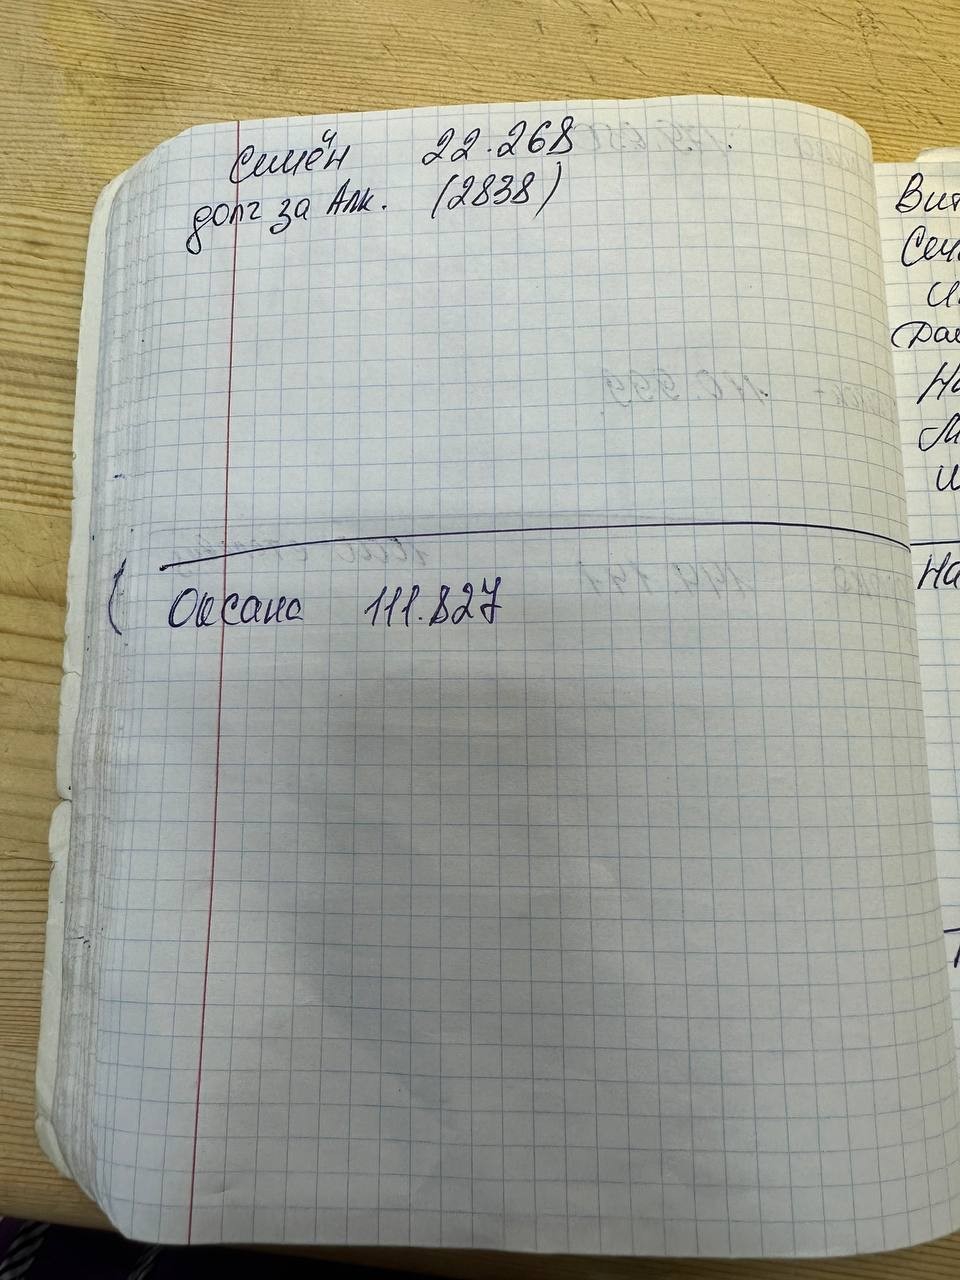 Семён 22.268
долг за Алк. (2838)
Оксана 111.827
Вит
Сем
На
М
На